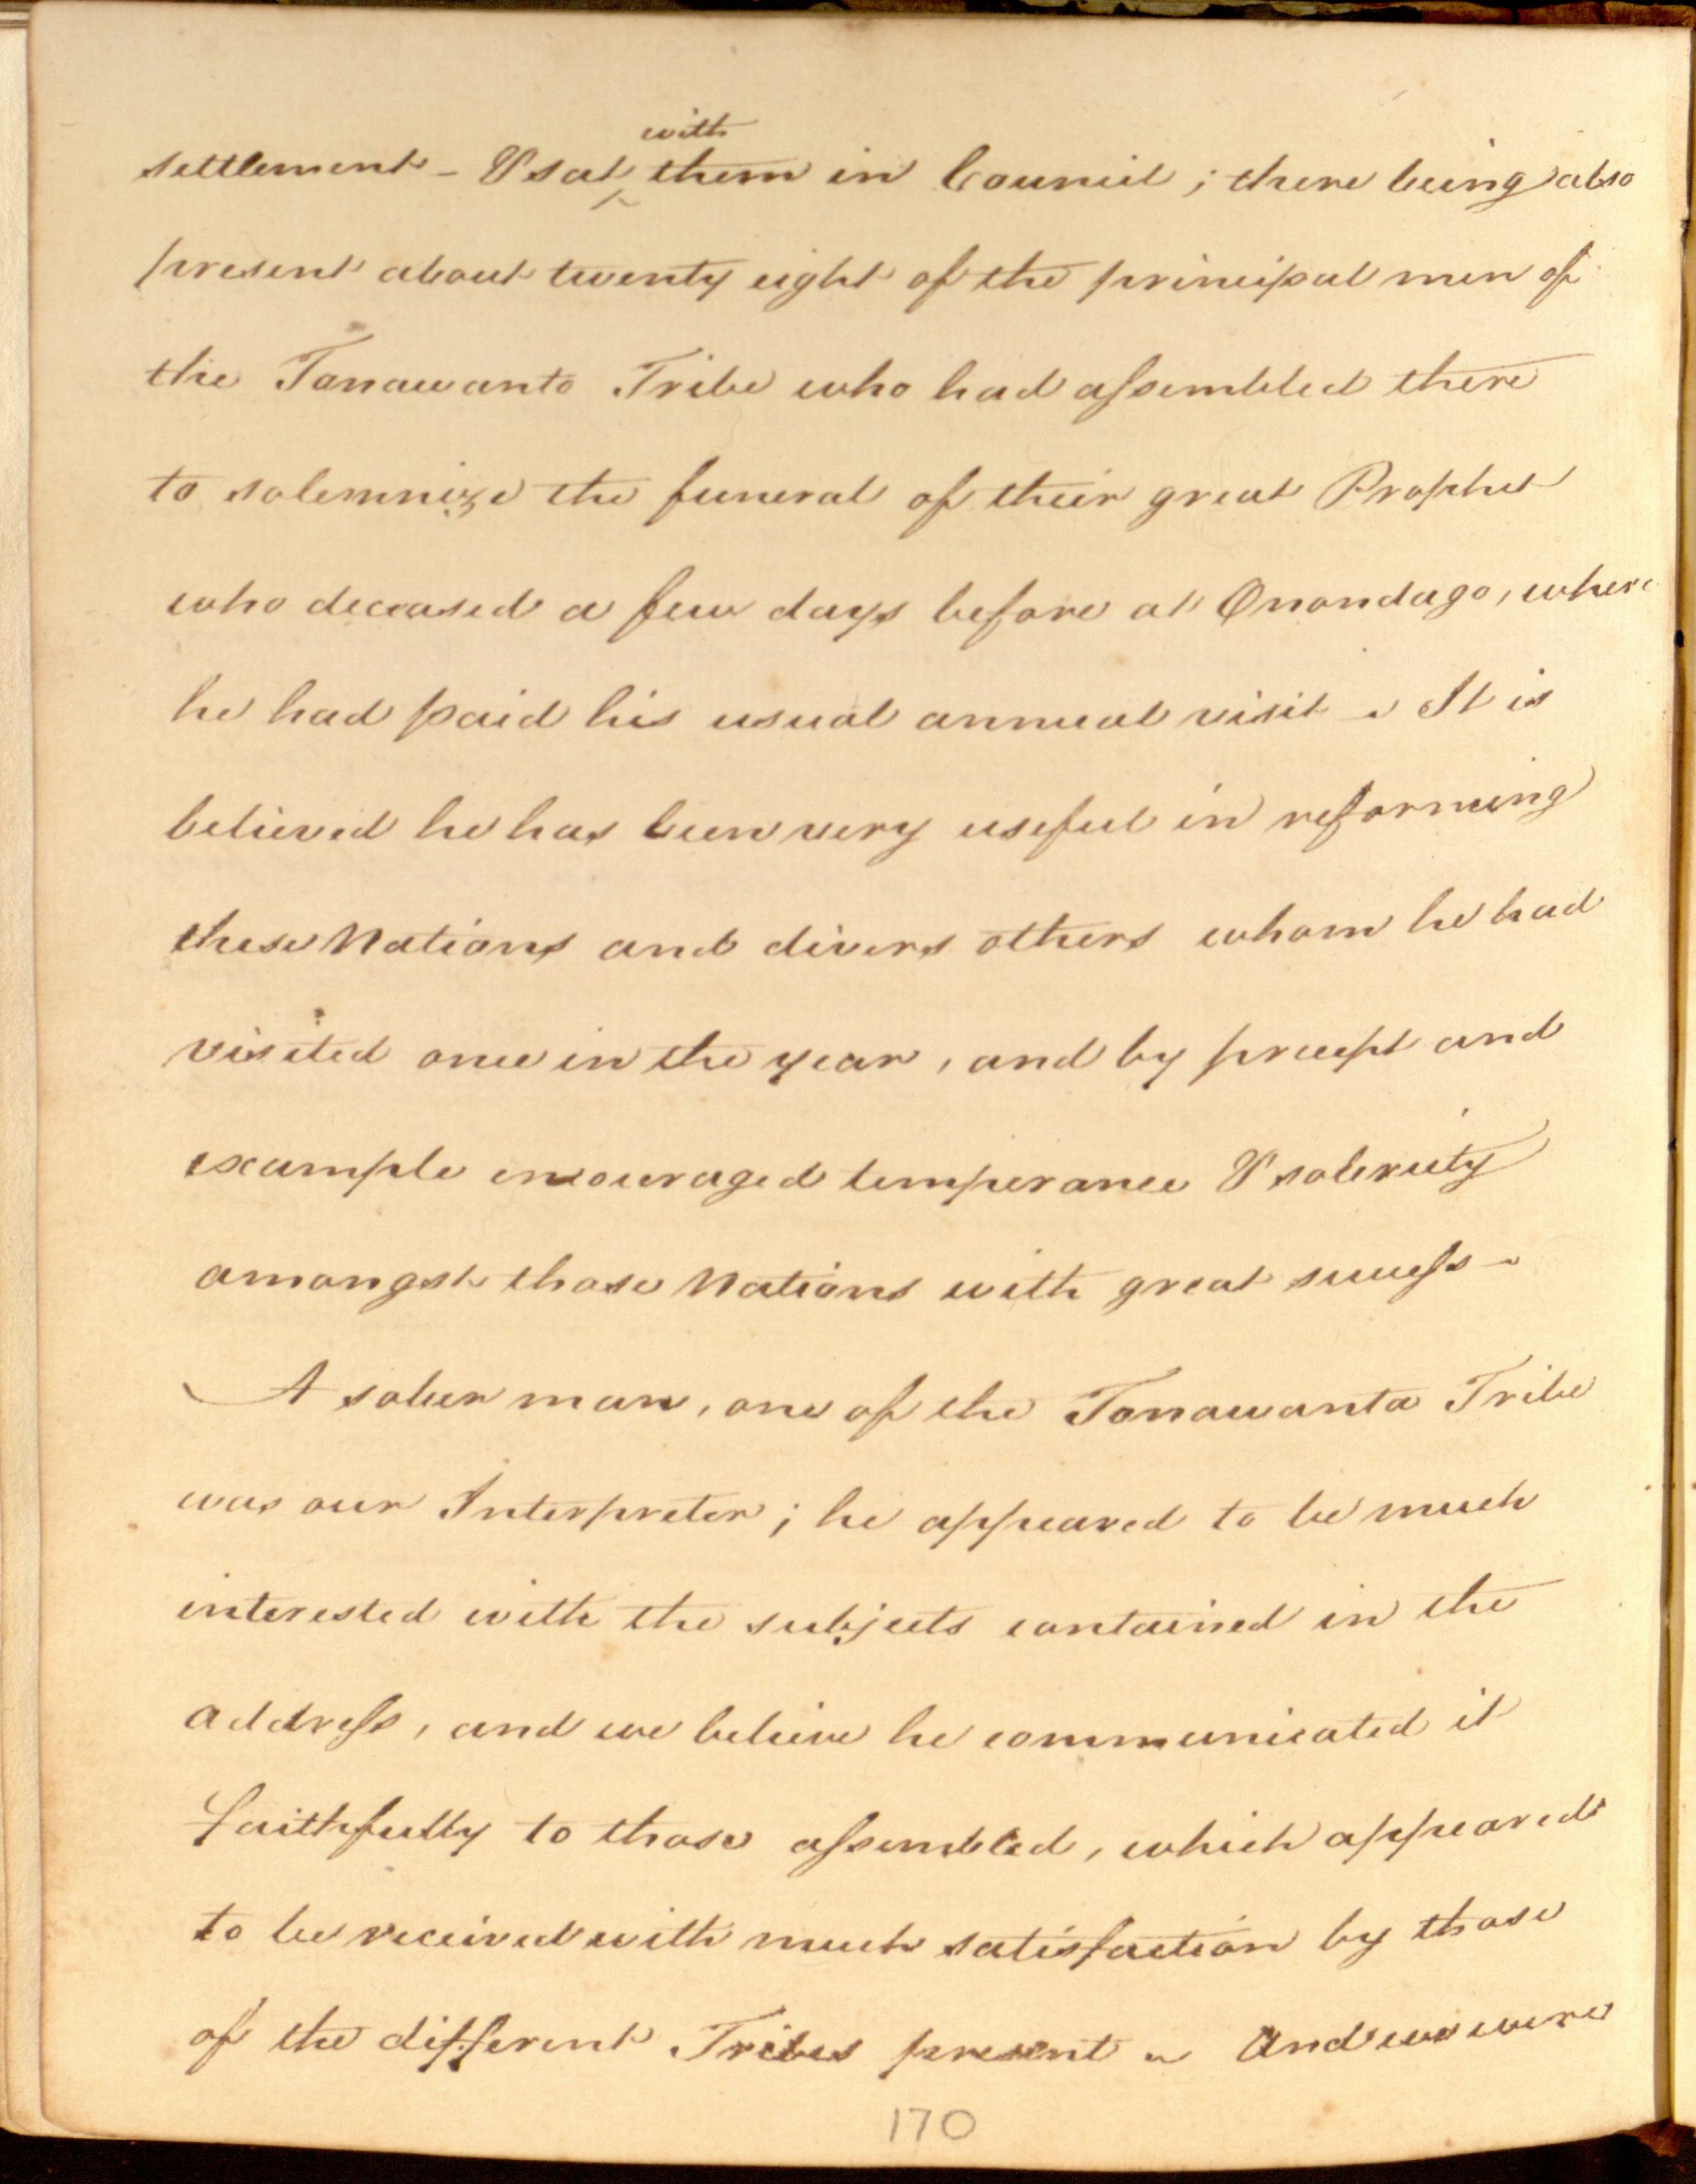 settlement - & sat with them in Council ; there being also
present about twenty eight of the principal men of
the Tanawanto Tribe who had assembled there
to solemnize the funeral of their great Prophet
who deceased a few days before at Onondago, where
he had paid his usual annual visit - It is
believed he has been very useful in reforming
these Nations and divers others whom he had
visited once in the year, and by precept and
example encouraged temperance & sobriety
amongst those Nations with great success -
A sober man, one of the Tonawanta Tribe
was our Interpreter ; he appeared to be much
interested with the subjects contained in the
address, and we believe he communicated it
faithfully to those assembled, which appeared
to be received with much satisfaction by those
of the different Tribes present - And we were
170